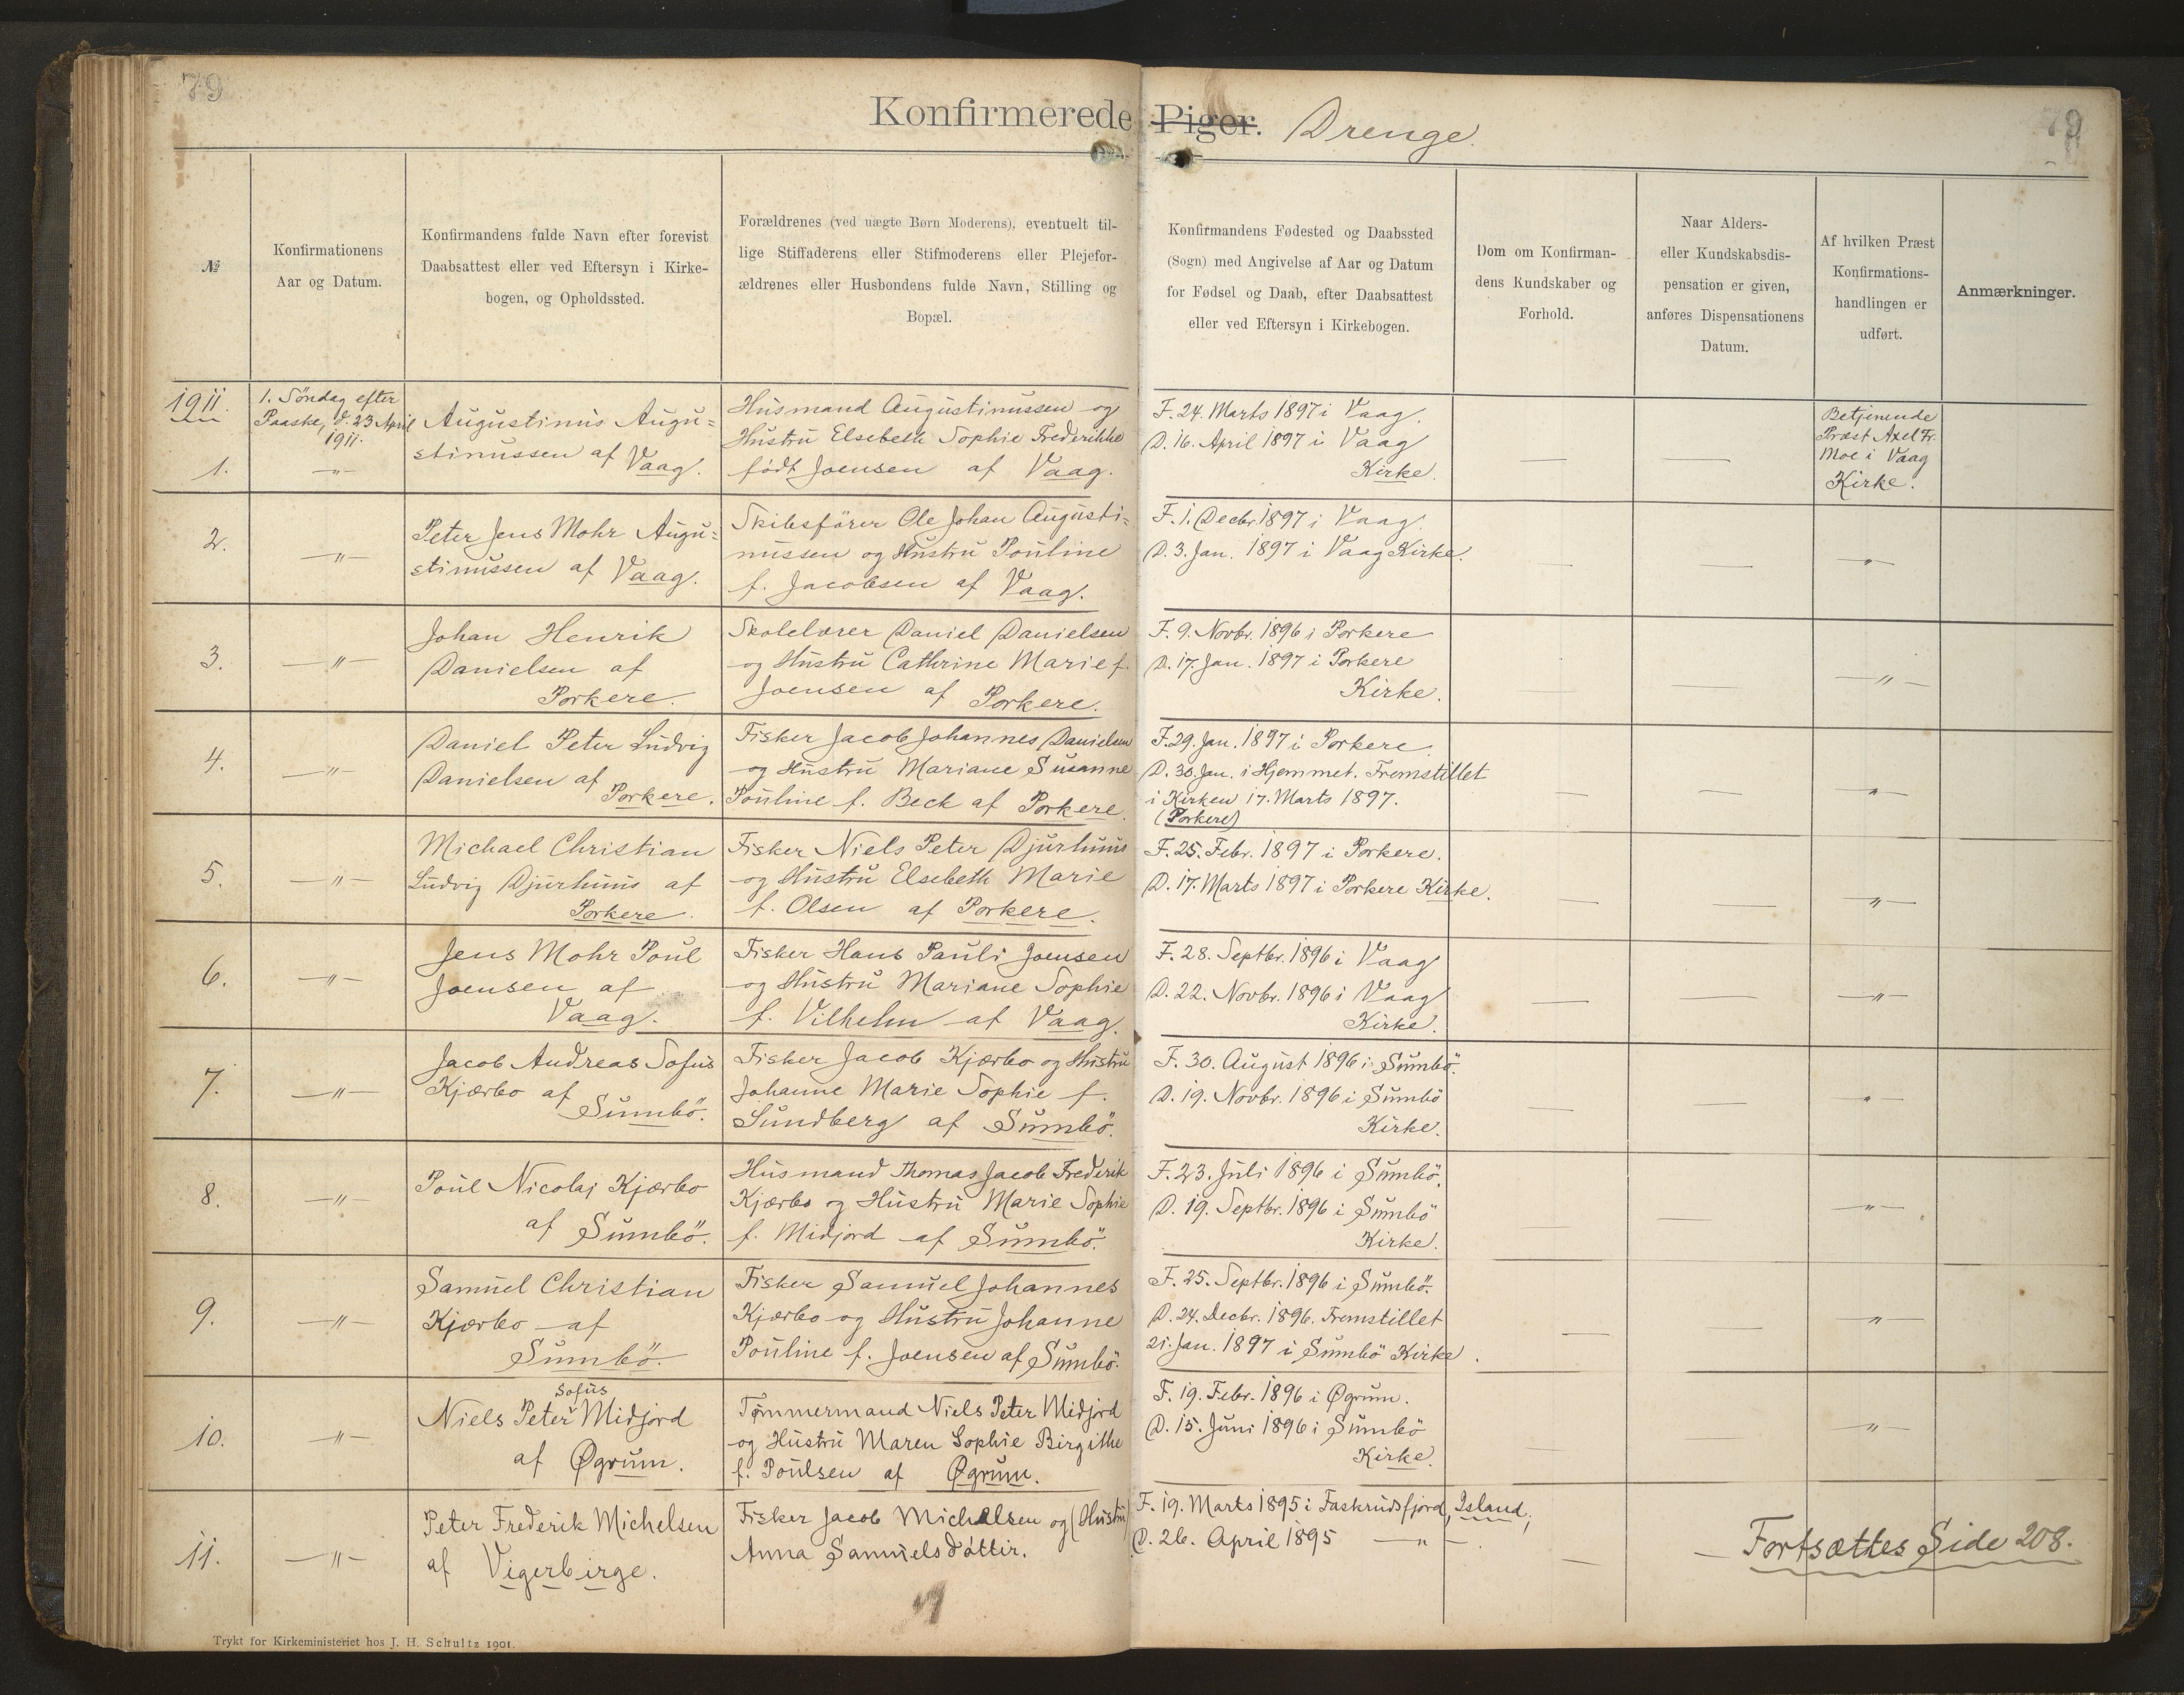 79
79
Konfirmerede Piger. Drenge.
№
Konfirmationens
Aar og Datum.
Konfirmandens fulde Navn efter forevist
Daabsattest eller ved Eftersyn i Kirke-
bogen, og Opholdssted.
Forældrenes (ved uægte Børn Moderens), eventuelt til-
lige Stiffaderens eller Stifmoderens eller Plejefor-
ældrenes eller Husbondens fulde Navn, Stilling og
Bopæl.
Konfirmandens Fødested og Daabssted
(Sogn) med Angivelse af Aar og Datum
for Fødsel og Daab, efter Daabsattest
eller ved Eftersyn i Kirkebogen.
Dom om Konfirman-
dens Kundskaber og
Forhold.
Naar Alders-
eller Kundskabsdis-
pensation er given,
anføres Dispensationens
Datum.
Af hvilken Præst
Konfirmations-
handlingen er
udført.
Anmærkninger.
1911.
1.
1. Söndag efter
Paaske, d. 23 April
1911.
—〃—
Augustinus Augu=
stinussen af Vaag.
Husmand Augustinussen og
Hustru Elsebeth Sophie Frederikke
født Joensen af Vaag.
F. 24. Marts 1897 i Vaag.
D. 16. April 1897 i Vaag
Kirke.
—
—
Betjenende
Præst Axel Fr.
Moe i Vaag
Kirke.
2.
—〃—
Peter Jens Mohr Augu=
stinussen af Vaag.
Skibsfører Ole Johan Augusti=
nussen og Hustru Pouline
f. Jacobsen af Vaag.
F. 1. Decbr. 1897 i Vaag.
D. 3. Jan. 1897 i Vaag Kirke.
—
—
—〃—
3.
—〃—
Johan Henrik
Danielsen af
Porkere.
Skolelærer Daniel Danielsen
og Hustru Cathrine Marie f.
Joensen af Porkere.
F. 9. Novbr. 1896 i Porkere
D. 17. Jan. 1897 i Porkere
Kirke.
—
—
—〃—
4.
—〃—
Daniel Peter Ludvig
Danielsen af
Porkere.
Fisker Jacob Johannes Danielsen
og Hustru Mariane Susanne
Pouline f. Beck af Porkere.
F. 29. Jan. 1897 i Porkere.
D. 30. Jan. i Hjemmet. Fremstillet
i Kirken 17. Marts 1897.
(Porkere)
—
—
—〃—
5.
—〃—
Michael Christian
Ludvig Djurhuus af
Porkere.
Fisker Niels Peter Djurhuus
og Hustru Elsebeth Marie
f. Olsen af Porkere.
F. 25. Febr. 1897 i Porkere.
D. 17. Marts 1897 i Porkere Kirke.
—
—
—〃—
6.
—〃—
Jens Mohr Poul
Joensen af
Vaag.
Fisker Hans Pauli Joensen
og Hustru Mariane Sophie
f. Vilhelm af Vaag.
F. 28. Septbr. 1896 i Vaag
D. 22. Novbr. 1896 i Vaag
Kirke.
—
—
—〃—
7.
—〃—
Jacob Andreas Sofus
Kjærbo af
Sumbö.
Fisker Jacob Kjærbo og Hustru
Johanne Marie Sophie f.
Lundberg af Sumbö.
F. 30. August 1896 i Sumbö.
D. 19. Novbr. 1896 i Sumbö
Kirke.
—
—
—〃—
8.
—〃—
Poul Nicolaj Kjærbo
af Sumbö.
Husmand Thomas Jacob Frederik
Kjærbo og Hustru Marie Sophie
f. Midjord af Sumbö.
F. 23. Juli 1896 i Sumbö.
D. 19. Septbr. 1896 i Sumbö
Kirke.
—
—
—〃—
9.
—〃—
Samuel Christian
Kjærbo af
Sumbö.
Fisker Samuel Johannes
Kjærbo og Hustru Johanne
Pouline f. Joensen af Sumbö.
F. 25. Septbr. 1896 i Sumbö.
D. 24. Decbr. 1896. Fremstillet
21. Jan. 1897 i Sumbö Kirke.
—
—
—〃—
10.
—〃—
Sofus
Niels Peter Midjord
af Øgrum.
Tømmermand Niels Peter Midjord
og Hustru Maren Sophie Birgithe
f. Poulsen af Øgrum.
F. 19. Febr. 1896 i Øgrum.
D. 15. Juni 1896 i Sumbö
Kirke.
—
—
—〃—
11.
—〃—
Peter Frederik Michelsen
af Vigerbirge.
Fisker Jacob Michelsen og (Hustru)
Anna Samuelsdóttir.
F. 19. Marts 1895 i Faskrudsfjord, Island,
D. 26. April 1895 —〃—.
—
—
Fortsættes Side 208.
Trykt for Kirkeministeriet hos J. H. Schultz 1901.